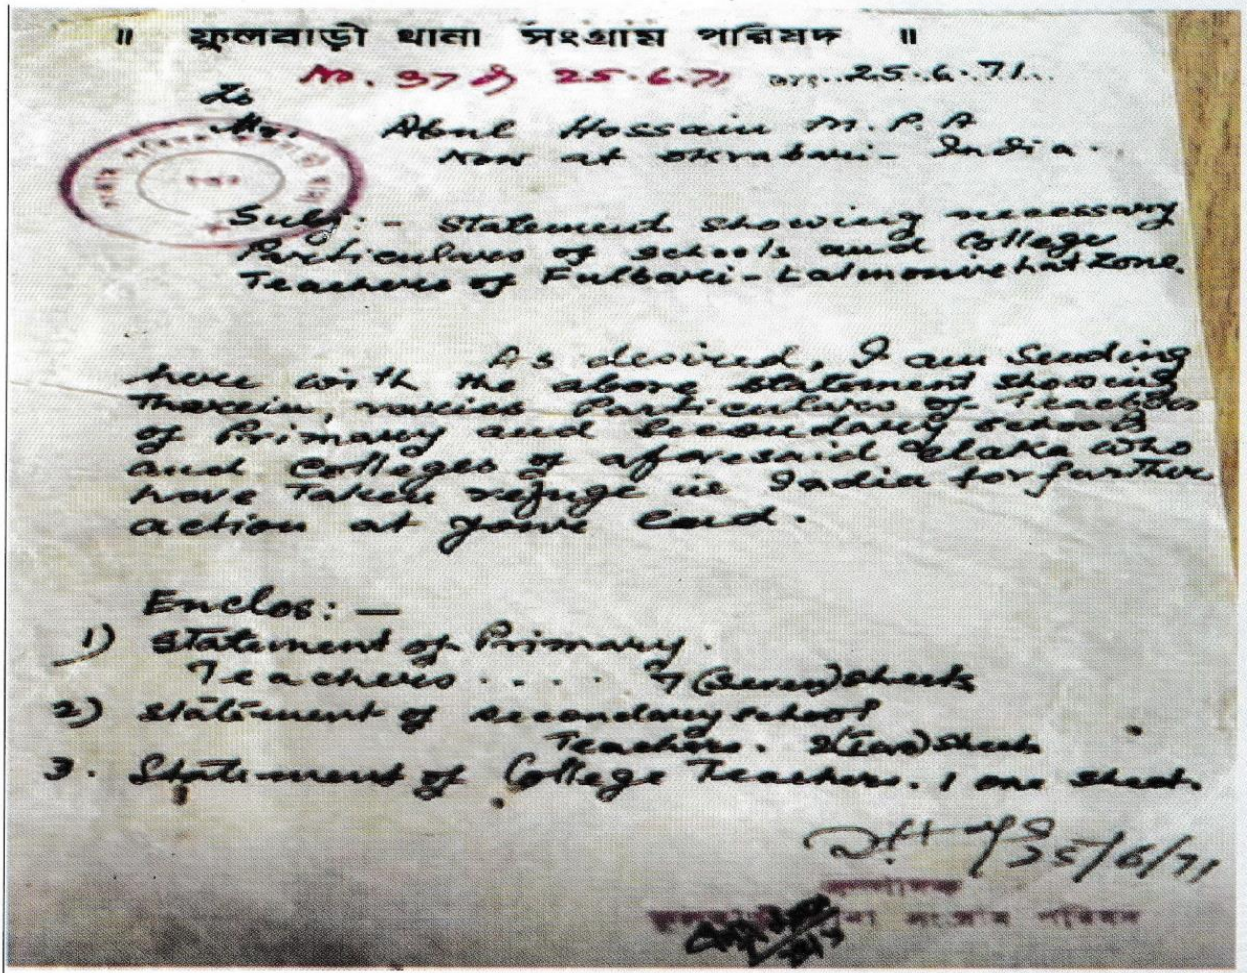 ॥ ফুলবাড়ী থানা সংগ্রাম পরিষদ ॥
No. 37 dt 25.6.71 তাং..25.6.71..
To
Mr. Abul Hossain M.P.A
Now at Okrabari - India.
Subj:- Statement showing necessary
Particulars of schools and College
Teachers of Fulbari - Lalmonirhat Zone.
As desired, I am Sending
here with the above statement showing
Therein, various Particulars of Teachers
of Primary and Secondary schools
and Colleges of aforesaid elaka who
have Taken refuge in India for further
action at your end.
Enclos: —
1) Statement of Primary.
Teachers .... 7 (seven) sheets
2) Statement of secondary school
Teachers. 2 (two) sheets
3. Statement of College Teachers. 1 one sheet.
25/6/71
সম্পাদক
ফুলবাড়ী থানা সংগ্রাম পরিষদ